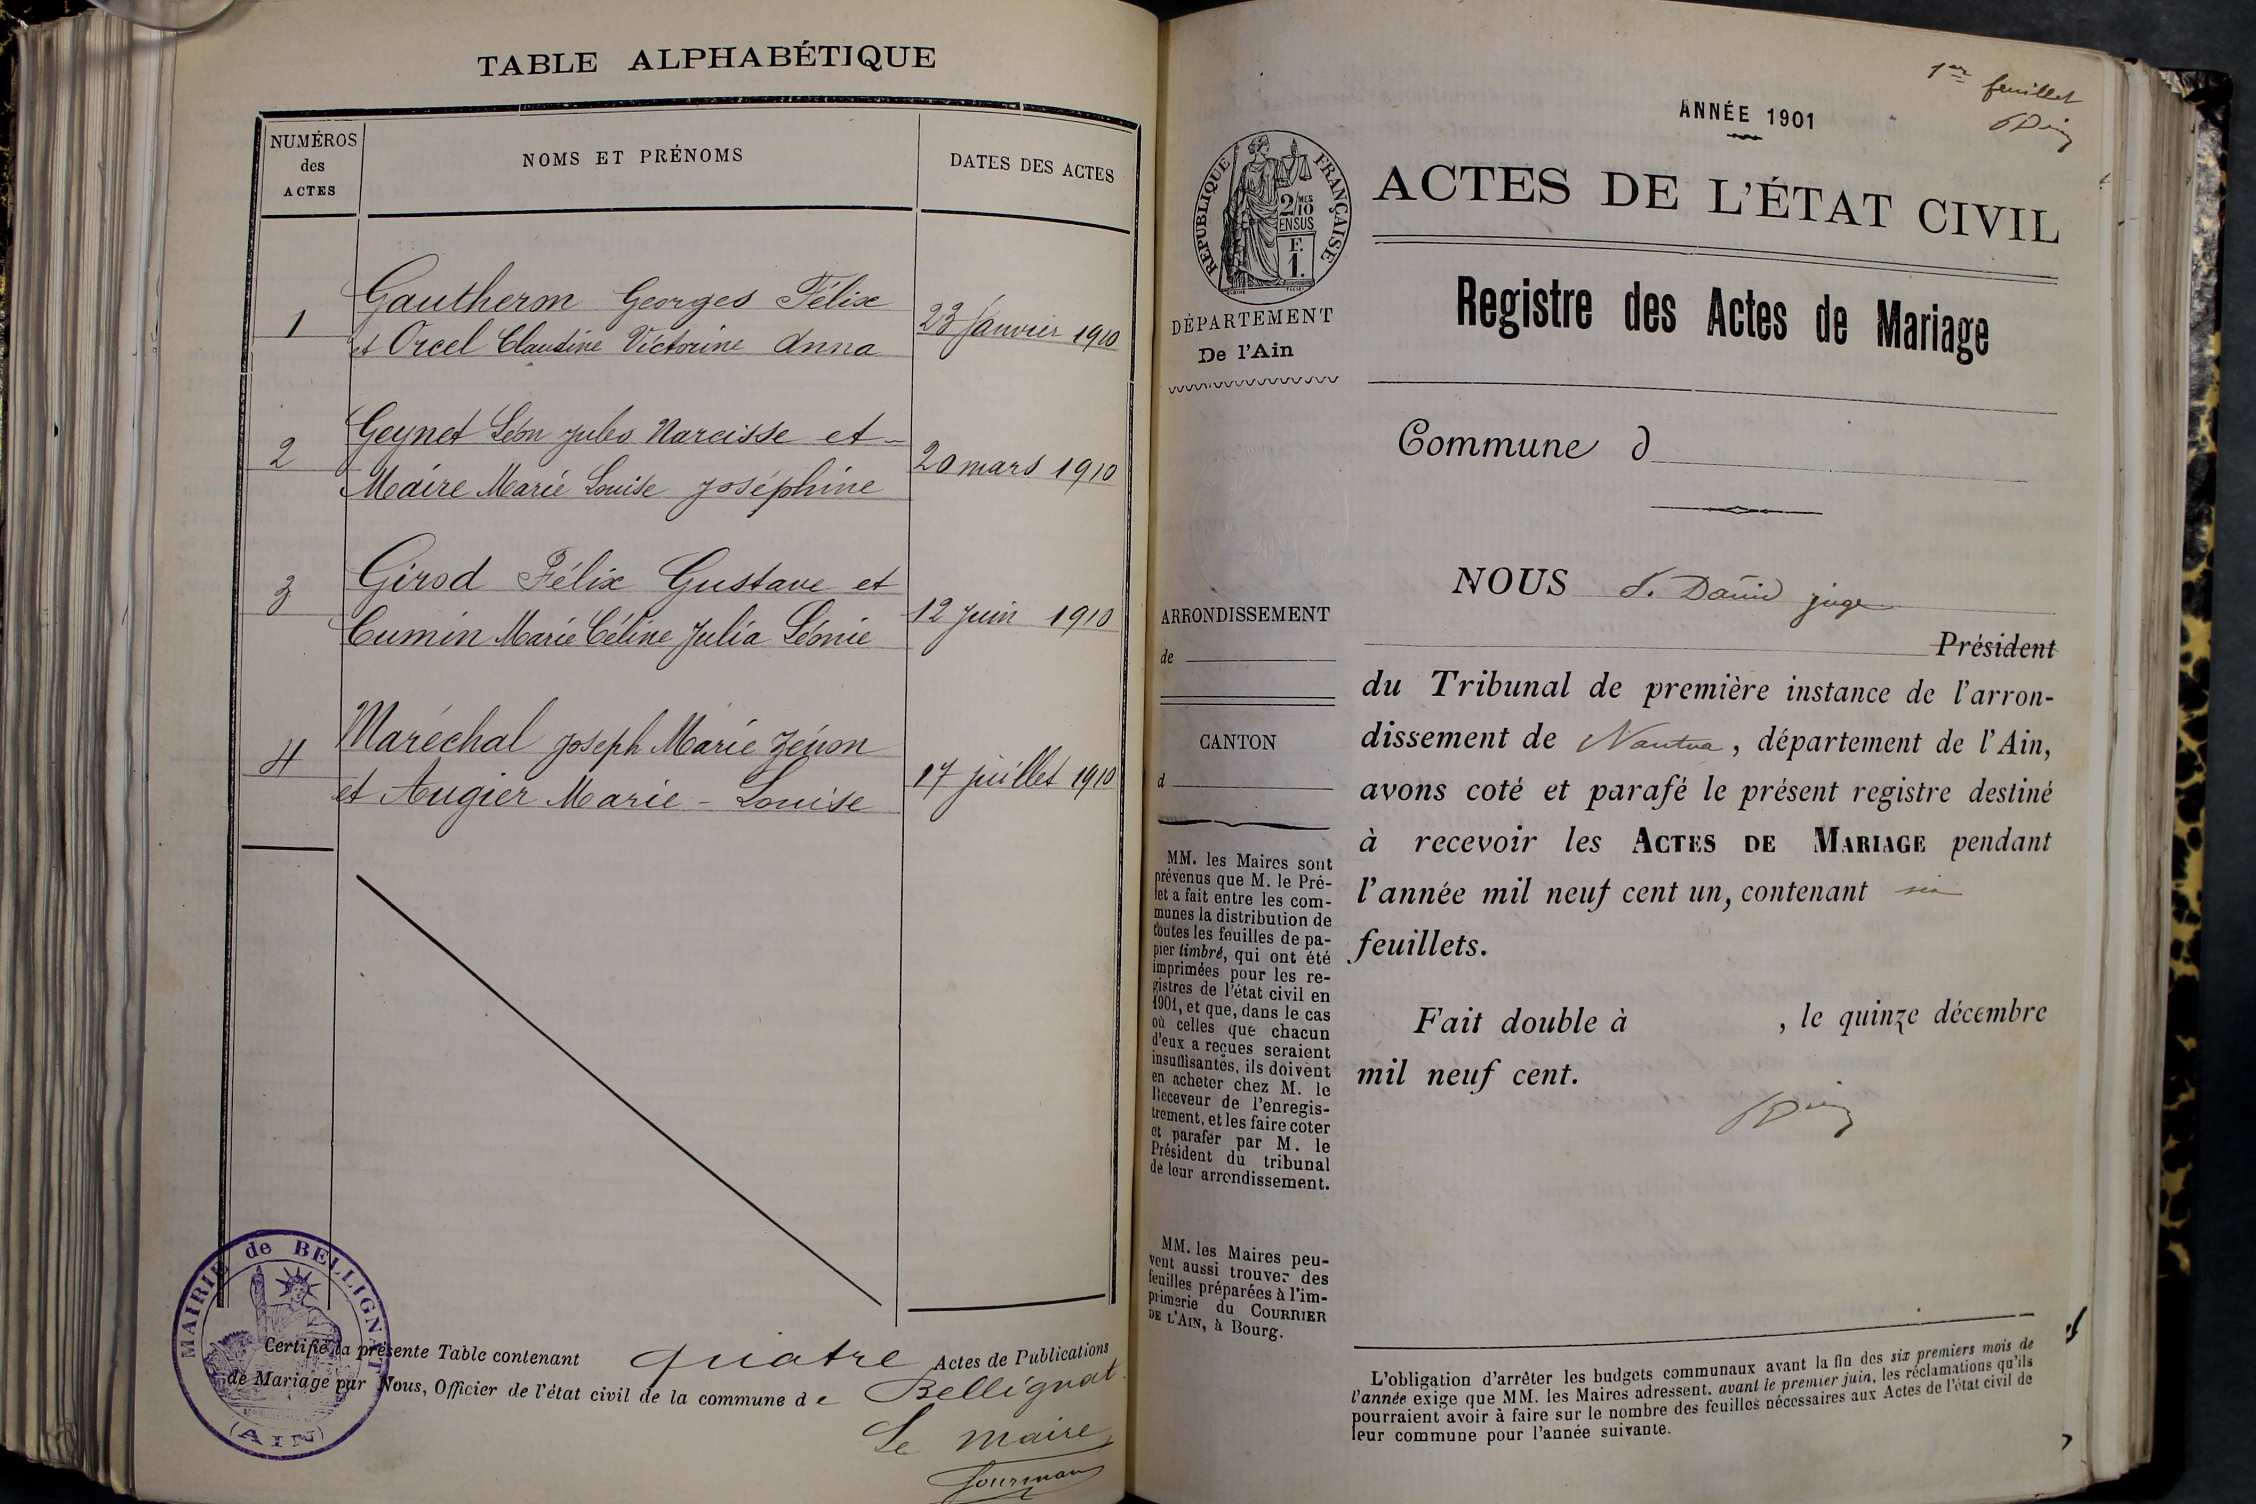 TABLE ALPHABÉTIQUE
NUMÉROS
des
ACTES
NOMS ET PRÉNOMS
DATES DES ACTES
1
Gautheron Georges Félix
et Orcel Claudine Victorine Anna
23 Janvier 1910
2
Geynet Léon Jules Narcisse et
Maire Marie Louise Joséphine
20 mars 1910
3
Girod Félix Gustave et
Cumin Marie Céline Julia Léonie
12 juin 1910
4
Maréchal Joseph Marie Zénon
et Augier Marie-Louise
17 juillet 1910
MAIRIE de BELLIGNAT
(AIN)
Certifié la présente Table contenant quatre Actes de Publications
de Mariage par Nous, Officier de l'état civil de la commune de Bellignat.
Le maire
1er feuillet
ANNÉE 1901
ACTES DE L'ÉTAT CIVIL
RÉPUBLIQUE FRANÇAISE
2/10 MES
EN SUS
F.
1.
DÉPARTEMENT
De l'Ain
Registre des Actes de Mariage
Commune d
NOUS F. David juge
Président
ARRONDISSEMENT
de
CANTON
d
du Tribunal de première instance de l'arron-
dissement de Nantua, département de l'Ain,
avons coté et parafé le présent registre destiné
à recevoir les ACTES DE MARIAGE pendant
l'année mil neuf cent un, contenant six
feuillets.
Fait double à , le quinze décembre
mil neuf cent.
MM. les Maires sont
prévenus que M. le Pré-
fet a fait entre les com-
munes la distribution de
toutes les feuilles de pa-
pier timbré, qui ont été
imprimées pour les re-
gistres de l'état civil en
1901, et que, dans le cas
où celles que chacun
d'eux a reçues seraient
insuffisantes, ils doivent
en acheter chez M. le
Receveur de l'enregis-
trement, et les faire coter
et parafer par M. le
Président du tribunal
de leur arrondissement.
MM. les Maires peu-
vent aussi trouver des
feuilles préparées à l'im-
primerie du COURRIER
DE L'AIN, à Bourg.
L'obligation d'arrêter les budgets communaux avant la fin des six premiers mois de
l'année exige que MM. les Maires adressent, avant le premier juin, les réclamations qu'ils
pourraient avoir à faire sur le nombre des feuilles nécessaires aux Actes de l'état civil de
leur commune pour l'année suivante.